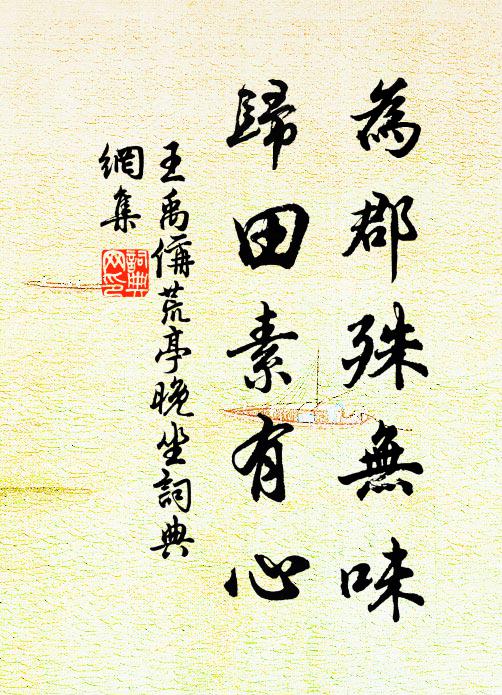 為郡殊無味
歸田素有心
王禹偁荒亭晚坐詞典
網集
詞典網印